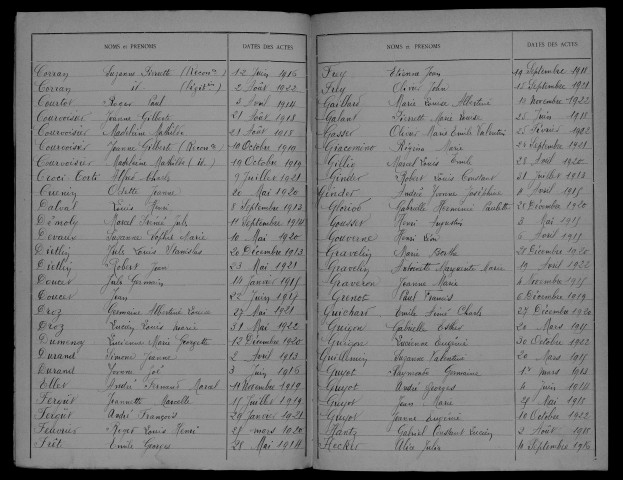 NOMS et PRÉNOMS DATES DES ACTES
Corran Suzanne Pierrette (Reconn.) 12 Juin 1916
Corran id. 2 Août 1922
Courtot Roger Paul 3 Avril 1914
Courvoisier Jeanne Gilberte 21 Août 1918
Courvoisier Madeleine Mathilde 21 Août 1918
Courvoisier Jeanne Gilberte (Reconn.) 10 Octobre 1919
Courvoisier Madeleine Mathilde (id.) 10 Octobre 1919
Croci Corti Alfred Charles 9 Juillet 1921
Cuenin Odette Jeanne 20 Mai 1920
Dalval Louis Henri 8 Septembre 1913
Démoly Marcel Jules 11 Septembre 1914
Devaux Suzanne Sophie Marie 10 Mai 1920
Dietlin Jules Louis Stanislas 20 Décembre 1913
Dietlin Robert Jean 23 Mai 1921
Doucer Jules Germain 14 Janvier 1915
Doucer Jean 22 Juin 1917
Droz Germaine Albertine Louise 27 Mai 1921
Droz Lucien Louis Marie 31 Mai 1922
Dumeny Lucienne Marie Georgette 12 Décembre 1920
Durand Simone Jeanne 2 Avril 1913
Durand Yvonne 3 Juin 1916
Ellet André Fernand Marcel 11 Novembre 1919
Fergüt Jeannette Marcelle 15 Juillet 1919
Fergüt André François 20 Janvier 1921
Feuvrier Roger Louis Henri 28 mars 1920
Frit Emile Georges 25 Mai 1914
NOMS et PRÉNOMS DATES DES ACTES
Frey Etienne Jean 19 Septembre 1918
Frey Olivier John 15 Septembre 1921
Gaillard Marie Louise Albertine 11 Novembre 1922
Galant Pierrette Marie Louise 25 Juin 1918
Gasser Olivier Marie Emile Valentin 25 Février 1922
Giacomino Régina Marie 24 Septembre 1921
Gillis Marcel Louis Emile 28 Août 1920
Ginder Robert Louis Constant 21 Juillet 1913
Ginder André Yvonne Joséphine 2 Avril 1915
Gloriod Gabrielle Hermance Paulette 25 Décembre 1920
Gousset Henri Augustin 3 Mai 1915
Gouverne Henri Léon 6 Avril 1915
Gravelin Marie Berthe 25 Décembre 1920
Gravelin Antoinette Marguerite Marie 19 Avril 1922
Graveron Jeanne Marie 6 Novembre 1915
Grenot Paul Francis 6 Décembre 1919
Guichard Emile Aimé Charles 27 Décembre 1920
Guigon Gabrielle Esther 20 Mars 1915
Guigon Lucienne Eugénie 30 Octobre 1922
Guillemin Suzanne Valentine 20 Mars 1915
Guyot Raymonde Germaine 1er mars 1913
Guyot André Georges 4 Juin 1914
Guyot Jean Marie 21 Mai 1915
Guyot Jeanne Eugénie 10 Octobre 1922
Hantz Gabriel Constant Lucien 2 Août 1915
Hecker Alice Julia 10 Septembre 1916